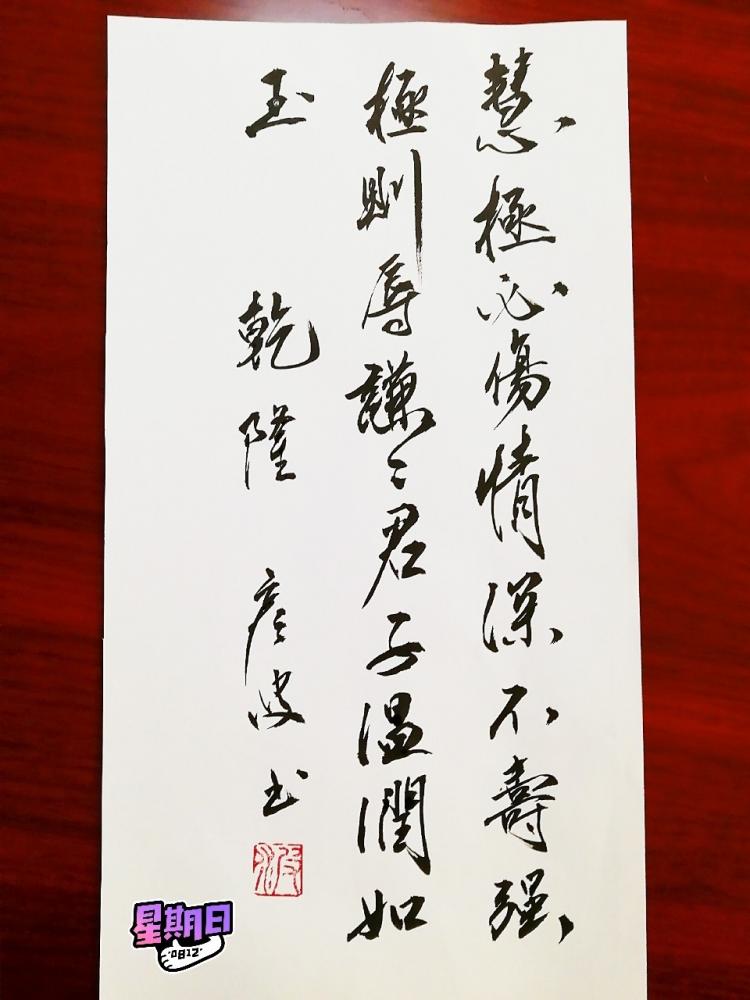 慧極必傷情深不壽强
極則辱謙〻君子温潤如
玉 乾隆 彦波书
波
星期日
0812